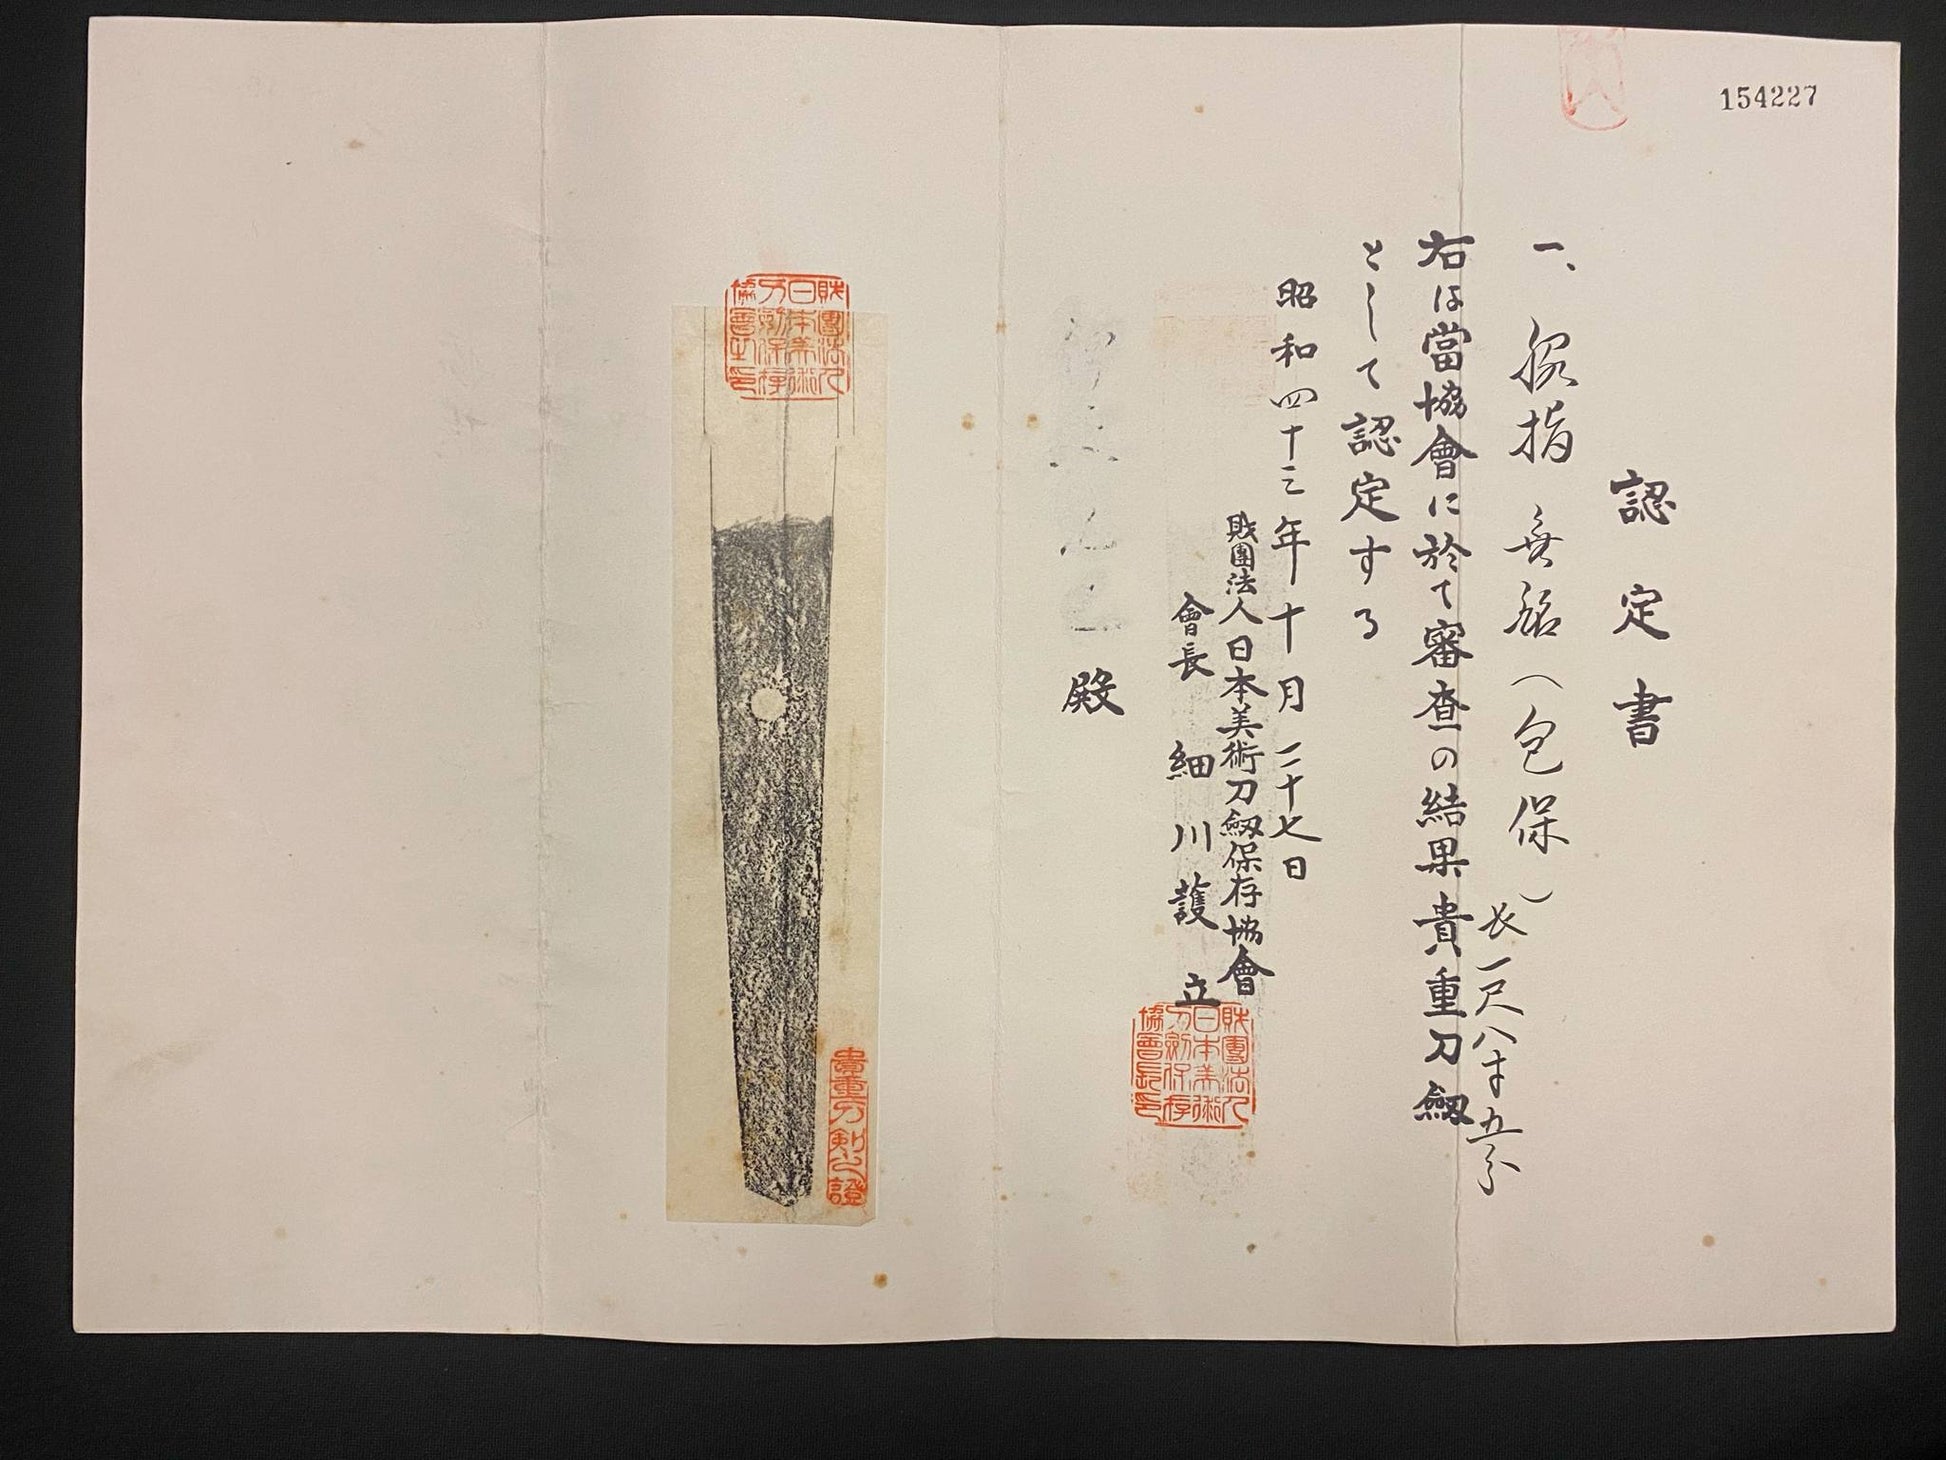 154227
認定書
一、脇指 無銘（包保）長一尺八寸五分
右は當協會に於て審査の結果貴重刀劔
として認定する
昭和四十三年十月二十七日
財團法人日本美術刀劔保存協會
會長 細川護立
財團法人日本美術刀劍保存協會長印
殿
財團法人日本美術刀劍保存協會之印
貴重刀剣之證